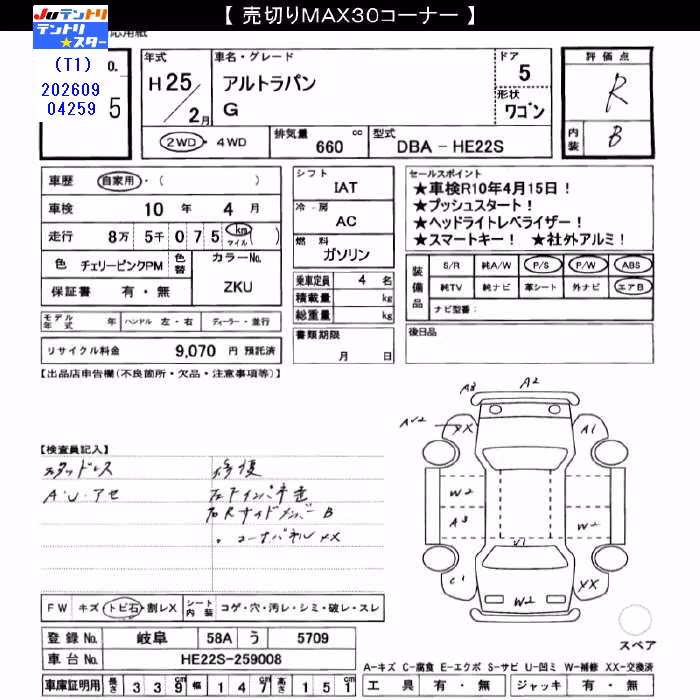 【 売切りMAX30コーナー 】
JUテントリ
テントリ★スター
応用紙
(T1)
202609
04259
0.
5
年式
H25/2月
車名・グレード
アルトラパン
G
ドア
5
形状
ワゴン
評価点
R
内装
B
2WD・4WD
排気量
660
cc
型式
DBA - HE22S
車歴
自家用・( )
車検
10 年 4 月
走行
8万 5千 0 7 5 km マイル ( )
色
チェリーピンクPM
色替
カラーNo.
ZKU
保証書
有・無
シフト
IAT
冷・房
AC
燃料
ガソリン
乗車定員
4 名
積載量
kg
総重量
kg
書類期限
月 日
セールスポイント
★車検R10年4月15日！
★プッシュスタート！
★ヘッドライトレベライザー！
★スマートキー！ ★社外アルミ！
装備品
S/R 純A/W P/S P/W ABS
純TV 純ナビ 革シート 外ナビ エアB
ナビ型番:
後日品
モデル年式
年
ハンドル 左・右
ディーラー・並行
リサイクル料金
9,070 円 預託済
【出品店申告欄(不良箇所・欠品・注意事項等)】
【検査員記入】
スタッドレス
A・U・アセ
修復
コーナーパネル XX
A3
A2
XX
A1
W2
A3
W2
C1
XX
W2
スペア
FW
キズ・トビ石・割レX
シート内装
コゲ・穴・汚レ・シミ・破レ・スレ
登録No.
岐阜
58A
う
5709
車台No.
HE22S-259008
車庫証明用
長さ 339cm
幅 147cm
高さ 151cm
A-キズ C-腐食 E-エクボ S-サビ U-凹ミ W-補修 XX-交換済
工具
有・無
ジャッキ
有・無